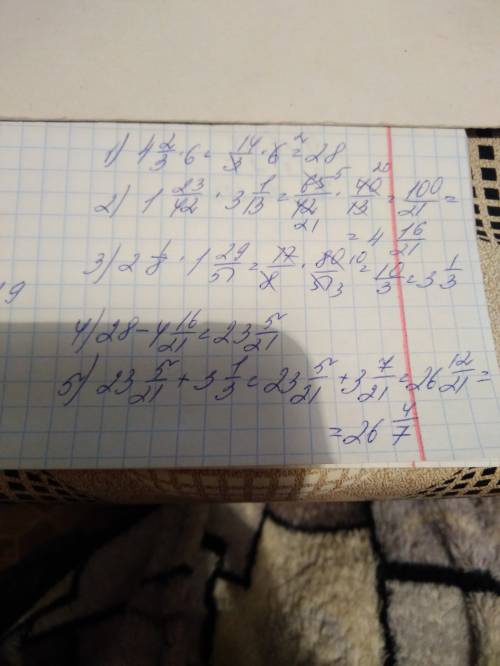 1) 4 2/3 · 6 = 14/3 · 6 2 = 28
2) 1 23/42 · 3 1/13 = 65/42 5 21 · 40/13 20 = 100/21 =
= 4 16/21
3) 2 1/8 · 1 29/51 = 17/8 · 80/51 10 3 = 10/3 = 3 1/3
4) 28 - 4 16/21 = 23 5/21
5) 23 5/21 + 3 1/3 = 23 5/21 + 3 7/21 = 26 12/21 =
= 26 4/7
19